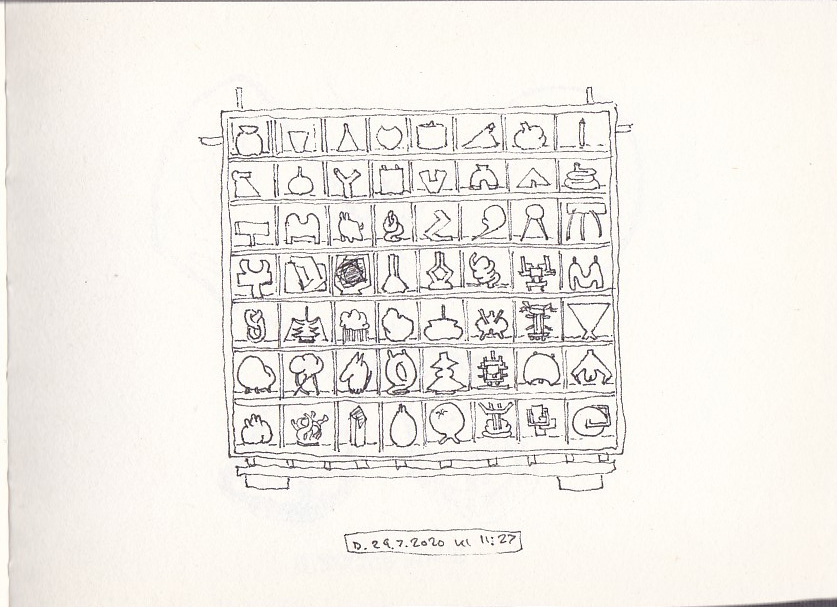 D. 29.7.2020 kl 11:27